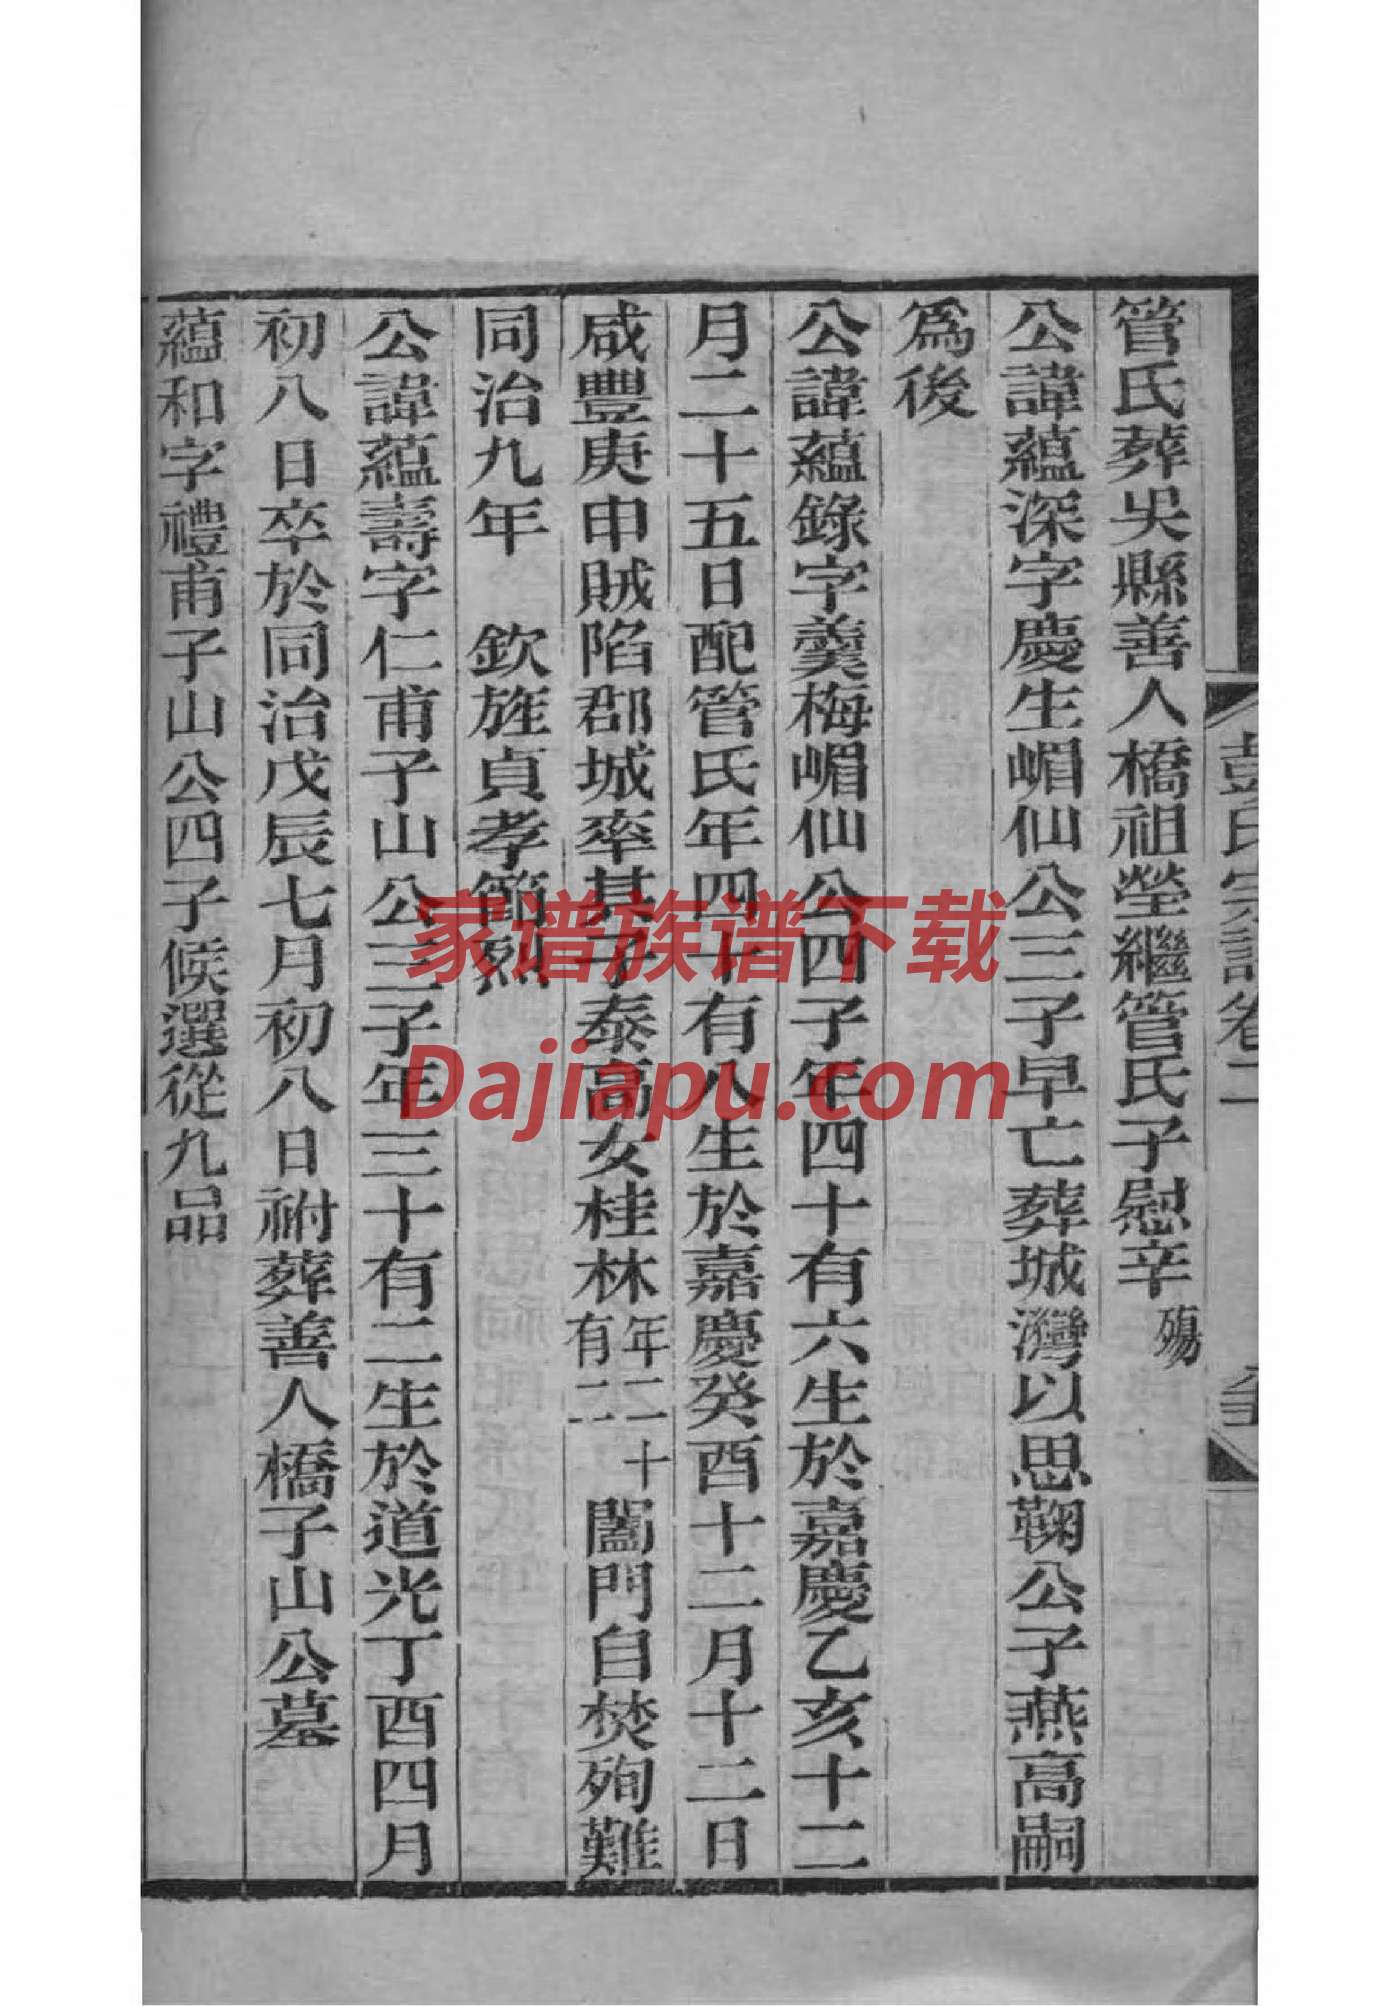 彭氏宗譜卷二
管氏葬吳縣善人橋祖塋繼管氏子慰辛殤
公諱蘊深字慶生嵋仙公三子早亡葬城灣以思鞠公子燕高嗣
爲後
公諱蘊錄字羹梅嵋仙公四子年四十有六生於嘉慶乙亥十二
月二十五日配管氏年四十有八生於嘉慶癸酉十二月十二日
咸豐庚申賊陷郡城率其子泰高女桂林年二十有二闔門自焚殉難
同治九年 欽旌貞孝節烈
公諱蘊壽字仁甫子山公三子年三十有二生於道光丁酉四月
初八日卒於同治戊辰七月初八日祔葬善人橋子山公墓
蘊和字禮甫子山公四子候選從九品
家谱族谱下载
Dajiapu.com